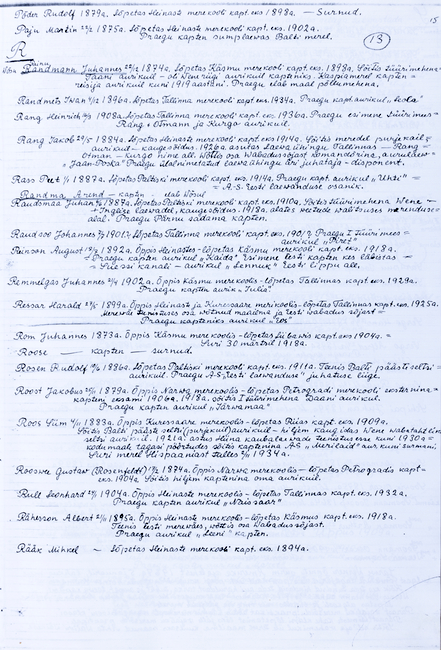 Põder Rudolf 1879a. Lõpetas Heinaste merekooli kapt. eks. 1898a. — Surnud.
15
Paju Martin 1875a. Lõpetas Heinaste merekooli kapt. eks. 1902a.
Praegu kapten Balti merel.
13
R
Randmann Johannes 1874a. Lõpetas Käsmu merekooli kapt. eks. 1898a. Sõitis tüürimehena
Taani aurikul - oli Wene riigi auriku kapteniks. Kaspiamerel kapten =
reisija aurikul kuni 1919 aastani. Praegu elab maal põllumehena.
Randmets Iwan 1896a. Lõpetas Tallinna merekooli kapt. eks. 1934a. Praegu kapt. aurikul
Rang Heinrich 1908a. Lõpetas Tallinna merekooli kapt. eks. 1936a. Praegu esimene tüürimees =
Rang & Otmann ja Kurgo aurikul.
Rang Jakob 1884a. Lõpetas Heinaste merekooli kapt. eks. 1914a. Sõitis meredel purjekail =
aurikul - kaugesõidus. 1926a. asutas Laewaühingu Tallinnas — Rang =
Otman — Kurgo nime all. Wõttis osa Wabadussõjast
"Jaan-Poska". Praegu ülalnimetatud laewaühingu äri juhataja - disponent.
Rass Peet 1887a. Lõpetas Paldiski merekooli kapt. eks. 1914a. Praegu kapt. aurikul "Uhti" =
= A-S. Eesti Laewanduse osanik.
Randma Arend — kapten. elab Wõsul
Raudsmaa Juhan 1887a. Lõpetas Paldiski merekooli kapt. eks. 1910a. Sõitis tüürimehena Wene —
+ Inglise laewadel, kaugesõidus. 1918a. alates
alal. Praegu Pärnu sadama kapten.
Raudsoo Johannes 1901a. Lõpetas Tallinna merekooli kapt. eks. Praegu I tüürimees =
aurikul "Kiret"
Reinson August 1892a. Õppis Heinastes - lõpetas Käsmu merekooli kapt. eks. 1918a.
Praegu kapten aurikul "Kaida". Esimene Eesti kapten kes läbistas —
Suessi kanali - aurikul "Lennuk" Eesti lipu all.
Remmelgas Johannes 1902a. Õppis Käsmu merekoolis - lõpetas Tallinnas kapt. eks. 1929a.
Praegu kapten aurik. "Julius"
Ressar Harald 1899a. Õppis Heinaste ja Kuressaare merikoolis - lõpetas Tallinnas kapt. eks. 1925a.
osa wõtnud maailma ja Eesti wabadus sõjast =
Praegu kapteniks aurikul "Eos"
Rom Juhannes 1873a. Õppis Käsmu merekoolis - lõpetas Liibawis kapt. eks 1904a. =
Suri 30 märtsil 1918a.
Roose — kapten — surnud.
Rosen Rudolf 1886a. Lõpetas Paldiski merekooli kapt. eks. 1911a. Teenis Balti päästi seltsi =
aurikul. Praegu A-S. "Eesti Laewanduse" juhatuse liige.
Roost Jakobus 1879a. Õppis Narwa merekoolis - lõpetas Petrogradi merekooli
kapteni eksami 1906a. 1918a. sõitis I tüürimehena Taani aurikul.
Praegu kapten aurikul "Tarwamaa"
Roos Siim 1883a. Õppis Kuressaare merekoolis - lõpetas Riias kapt. eks. 1909a.
Sõitis Balti päästeseltsi aurikul — hiljem kaugidas Wene
seltsi aurikul. 1921a. astus Hiina kaubalaewade teenistusesse kuni 1930a =
kodumaale tagasi pöördudes sõitis kaptenina A-S. "Merilaid" aur. kuni surmani.
Suri merel Hispaaniast tulles 1934a.
Rooswe Gustaw (Rosenfeldt) 1874a. Õppis Narwa merekoolis — lõpetas Petrogradis kapt-
eks. 1904a. Sõitis hiljem kaptenina oma aurikul.
Rull Leonhard 1904a. Õppis Tallinna merekoolis - lõpetas Tallinnas kapt. eks. 1932a.
Praegu kapten aurikul "Naissaar"
Räherson Albert 1895a. Õppis Heinaste merekoolis - lõpetas Käsmus kapt. eks. 1918a.
Teenis Eesti merewäes, wõttis osa Wabadussõjast.
Praegu aurikul "Leeni" kapten.
Rääx Mihkel — Lõpetas Heinaste merekooli kapt. eks. 1894a.